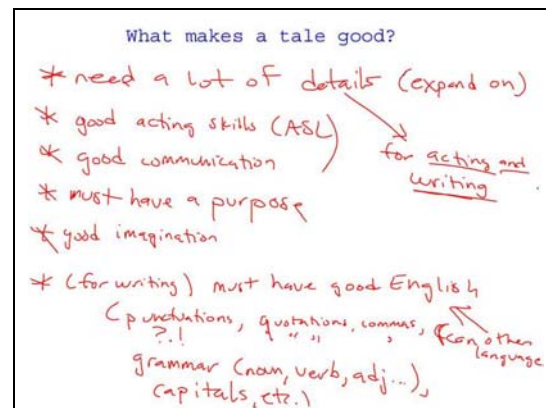 What makes a tale good?
* need a lot of details (expand on)
* good acting skills (ASL)
* good communication
for acting and
writing
* must have a purpose
* good imagination
* (for writing) must have good English
(punctuations, quotations, commas,
?.! " " ,
(can other
language
grammar (noun, verb, adj...),
capitals, etc.)